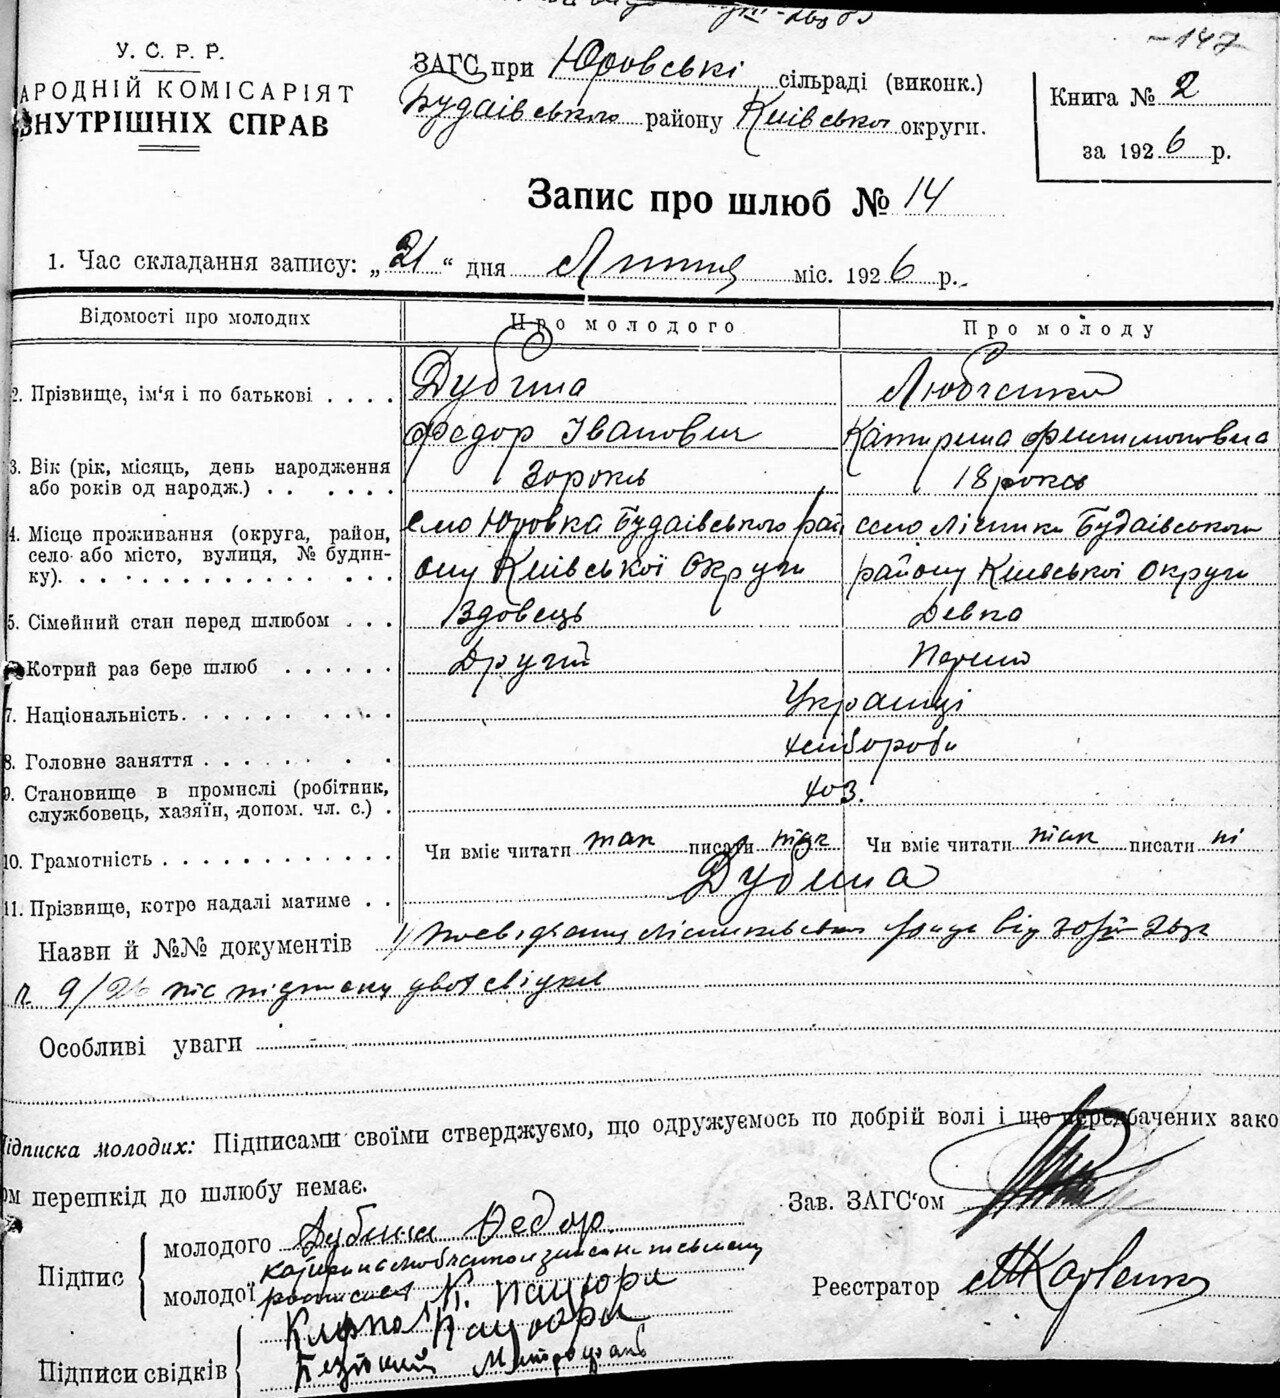 -147
У. С. Р. Р.
АРОДНІЙ КОМІСАРІЯТ
ВНУТРІШНІХ СПРАВ
ЗАГС при Юровські сільраді (виконк.)
Будаївського району Київської округи.
Книга № 2
за 1926 р.
Запис про шлюб № 14
1. Час складання запису: „21“ дня Липня міс. 1926 р.
Відомості про молодих Про молодого Про молоду
2. Прізвище, ім'я і по батькові . . . . Дубина Любченко
Федор Іванович Катирина Филимоновна
3. Вік (рік, місяць, день народження
або років од народж.) . . . . . . 30 років 18 років
4. Місце проживання (округа, район,
село або місто, вулиця, № будин-
ку). село Юровка Будаївського рай село Лісники Будаївського
ону Київської Округи району Київської Округи
5. Сімейний стан перед шлюбом . . . Вдовець Девка
Котрий раз бере шлюб . . . . . . Другий Перший
7. Національність. Українці
8. Головне заняття хлібороби
9. Становище в промислі (робітник,
службовець, хазяїн, допом. чл. с.) . хоз.
10. Грамотність Чи вміє читати так писати так Чи вміє читати так писати ні
11. Прізвище, котре надалі матиме . . Дубина
Назви й №№ документів 1) посвідчення Лісниківської від
9/26 підписки двох свідків
Особливі уваги
ідписка молодих: Підписами своїми стверджуємо, що одружуємось по добрій волі і що передбачених зако
ом перешкід до шлюбу немає.
Зав. ЗАГС'ом
Підпис молодого Дубина Федор
молодої Катирина Любченко
К. Пацюри
Реєстратор Карпенко
Підписи свідків Пацюри
Митрофан